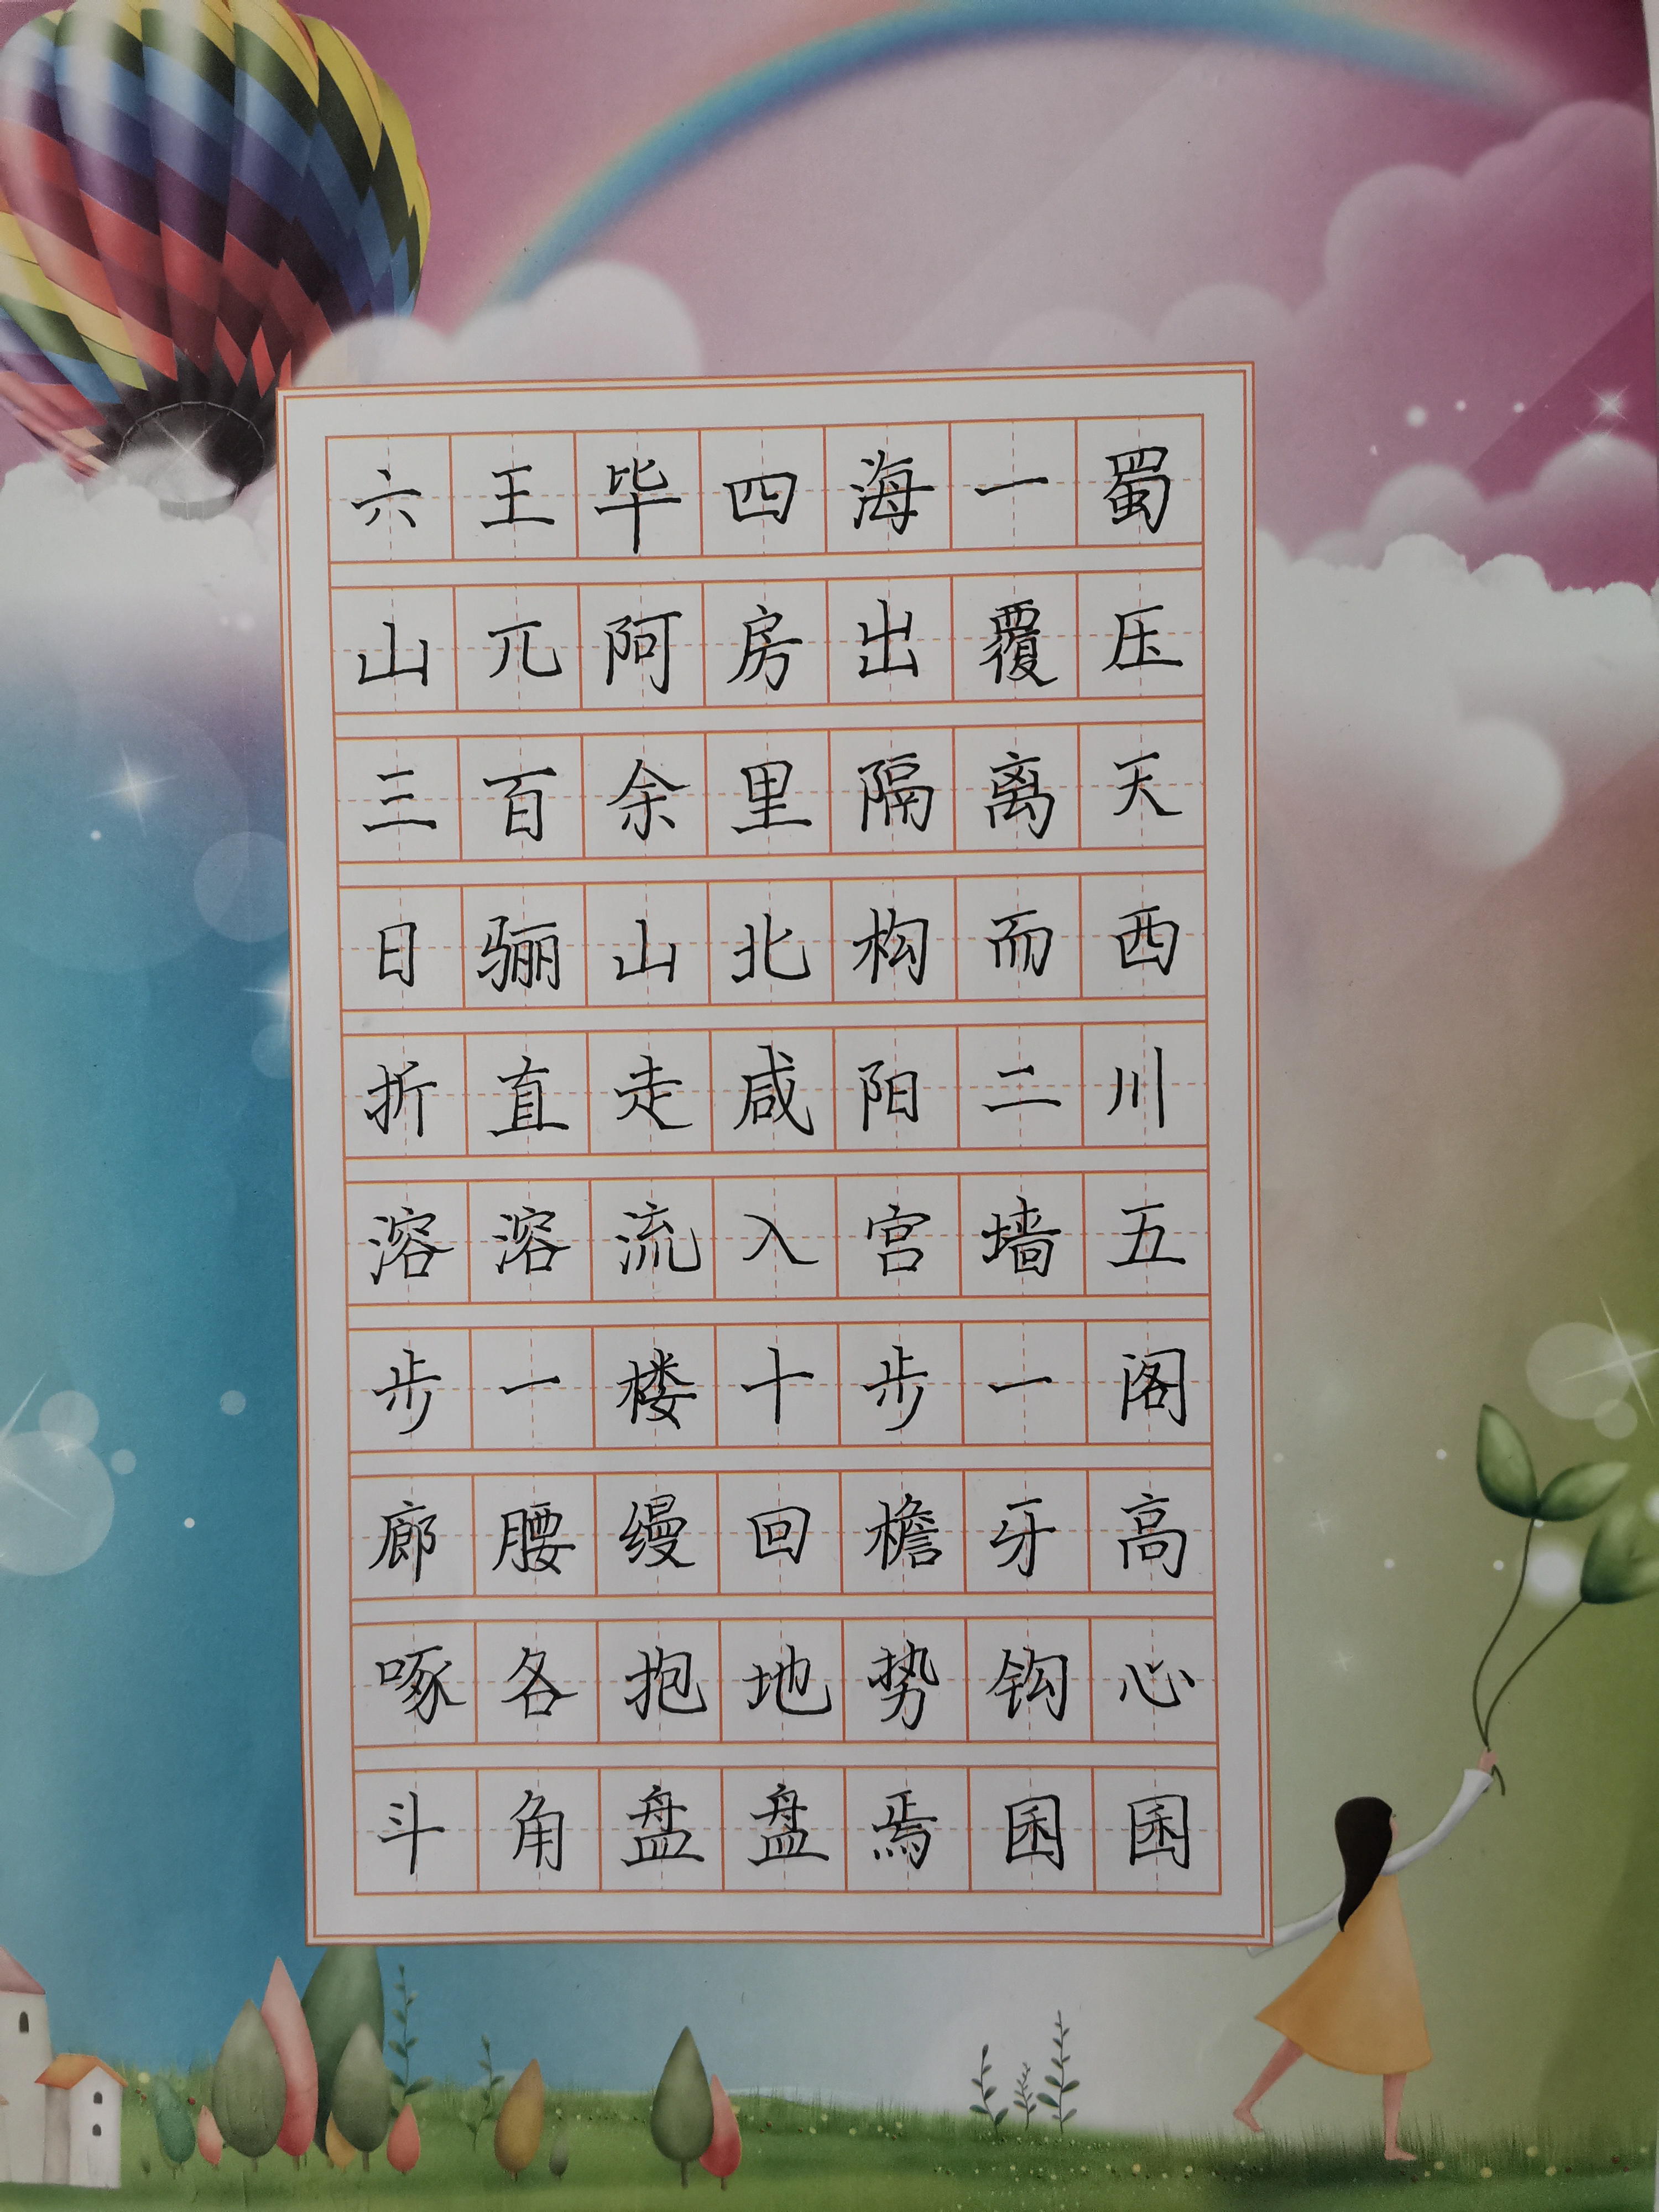 六王毕四海一蜀
山兀阿房出覆压
三百余里隔离天
日骊山北构而西
折直走咸阳二川
溶溶流入宫墙五
步一楼十步一阁
廊腰缦回檐牙高
啄各抱地势钩心
斗角盘盘焉囷囷